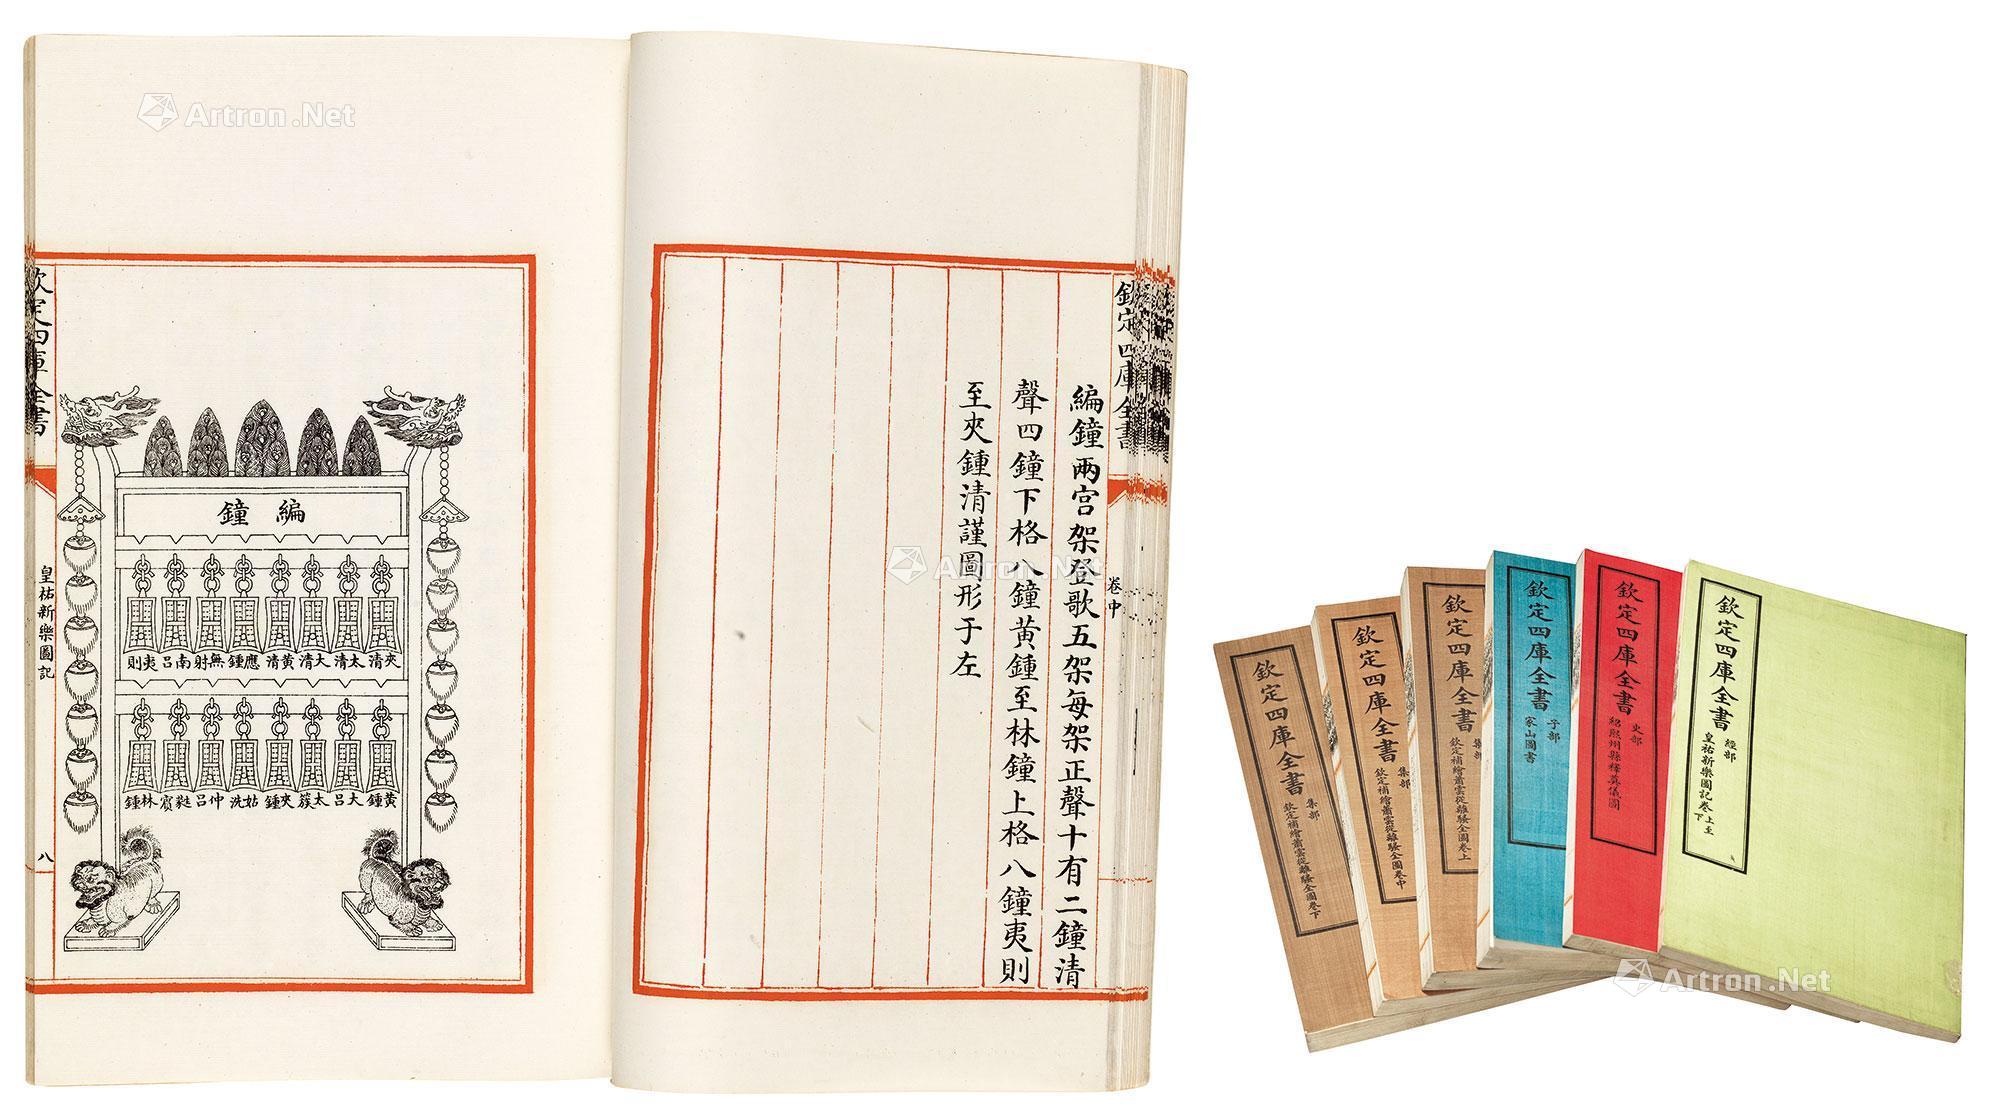 欽定四庫全書
卷中
編鐘兩宮架登歌五架每架正聲十有二鐘清
聲四鐘下格八鐘黃鍾至林鐘上格八鐘夷則
至夾鍾清謹圖形于左
編鐘
夾清 太清 大清 黃清 應鍾 無射 南呂 夷則
黃鍾 大呂 太簇 夾鍾 姑洗 仲呂 蕤賓 林鍾
欽定四庫全書
皇祐新樂圖記
八
欽定四庫全書 經部 皇祐新樂圖記卷上至下
欽定四庫全書 史部 紹熙州縣釋奠儀圖
欽定四庫全書 子部 家山圖書
欽定四庫全書 集部 欽定補繪蕭雲從離騷全圖卷上
欽定四庫全書 集部 欽定補繪蕭雲從離騷全圖卷中
欽定四庫全書 集部 欽定補繪蕭雲從離騷全圖卷下
Artron.Net
Artron.Net
Artron.Net